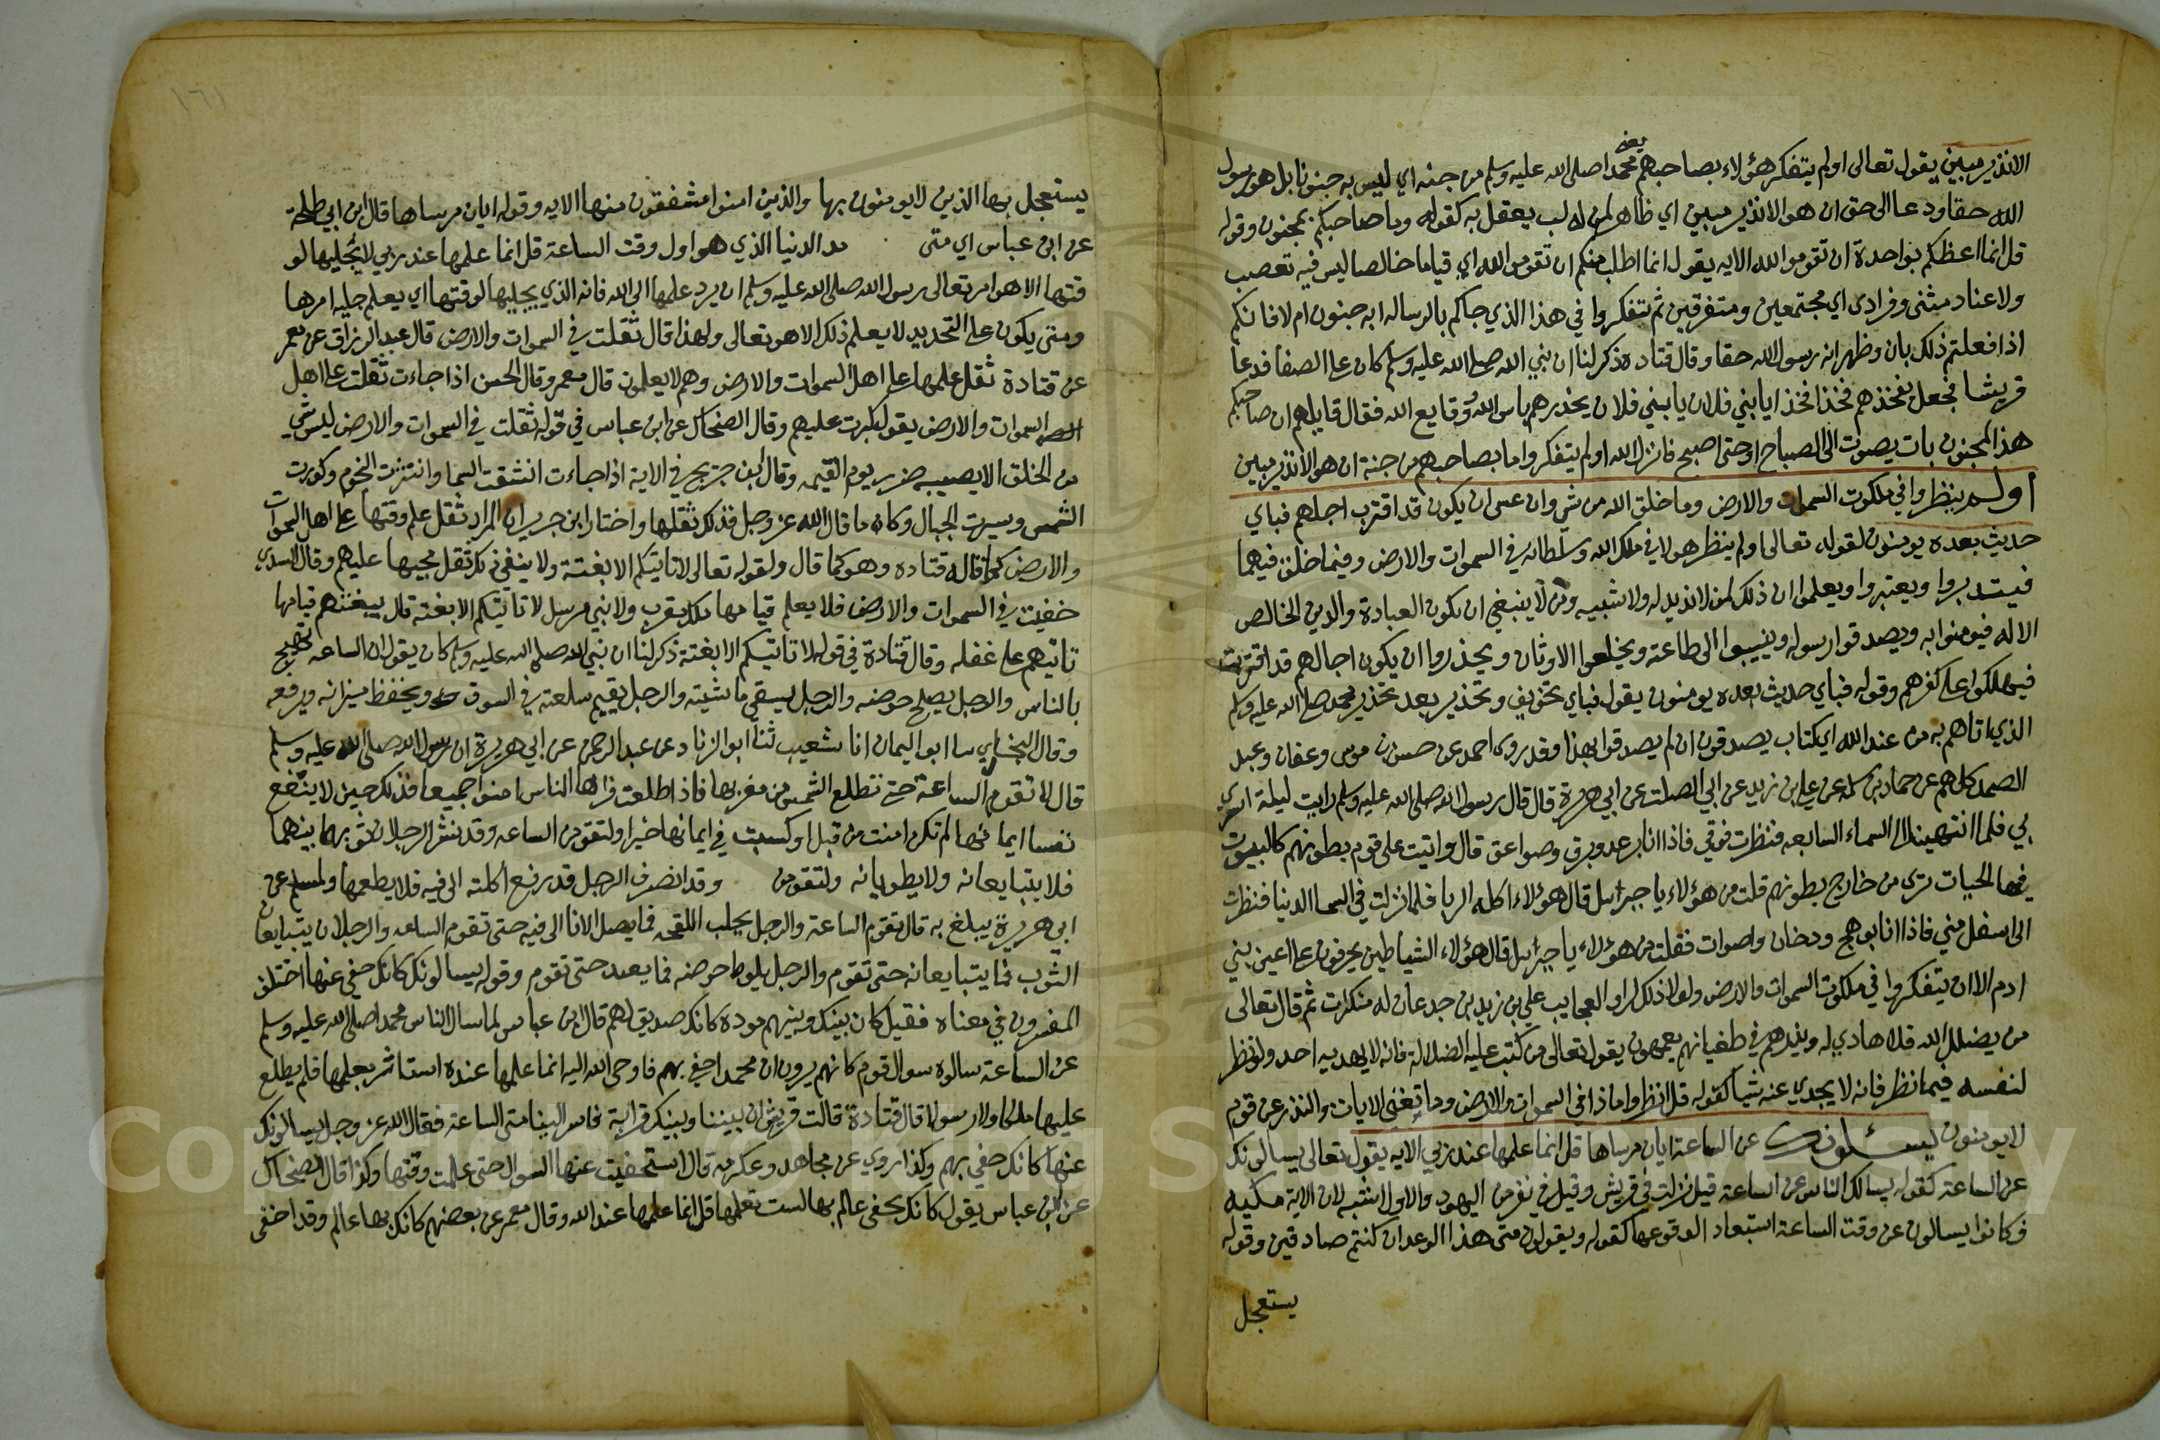 الا نذير مبين يقول تعالى اولم يتفكر هؤلاء بصاحبهم يعني محمدا صلى الله عليه وسلم من جنه اي ليس به جنون بل هو رسول
الله حقا ودعا الى حق ان هو الا نذير مبين اي ظاهر لمن له لب يعقل به كقوله وما صاحبكم بمجنون وقوله
قل انما اعظكم بواحدة ان تقوموا لله الايه يقول انما اطلب منكم ان تقوموا لله اي قياما خالصا ليس فيه تعصب
ولا عناد مثنى وفرادى اي مجتمعين ومتفرقين ثم تتفكروا في هذا الذي جاكم بالرساله ابه جنون ام لا فانكم
اذا فعلتم ذلك بان وظهر انه رسول الله حقا وقال قتادة ذكر لنا ان نبي الله صلى الله عليه وسلم كان على الصفا فدعا
قريشا فجعل يفخذهم فخذا فخذا يا بني فلان يا بني فلان يحذرهم باس الله ووقايع الله فقال قايلهم ان صاحبكم
هذا المجنون بات يصوت الى الصباح او حتى اصبح فانزل الله اولم يتفكروا ما بصاحبهم من جنة ان هو الا نذير مبين
اولم ينظروا في ملكوت السموات والارض وما خلق الله من شي وان عسى ان يكون قد اقترب اجلهم فباي
حديث بعده يومنون لقوله تعالى اولم ينظر هولا في ملك الله وسلطانه في السموات والارض وفيما خلق فيهما
فيتدبروا ويعتبروا ويعلموا ان ذلك لمن لا نذيد له ولا شبيه ومن لا ينبغي ان تكون العبادة والدين الخالص
الا له فيومنوا به ويصدقوا رسوله وينيبوا الى طاعته ويخلعوا الاوثان ويحذروا ان يكون اجالهم قد اقتربت
فيهلكوا على كفرهم وقوله فباي حديث بعده يومنون يقول فباي تخويف وتحذير بعد تحذير محمد صلى الله عليه وسلم
الذي اتاهم به من عند الله اي كتاب يصدقون ان لم يصدقوا بهذا وقد روى احمد عن حسن بن موسى وعفان وعبد
الصمد كلهم عن حماد بن سلمه عن علي بن زيد عن ابي الصلت عن ابي هريرة قال قال رسول الله صلى الله عليه وسلم رايت ليلة اسري
بي فلما انتهينا الى السماء السابعه فنظرت فوقي فاذا انا برعد وبرق وصواعق قال واتيت على قوم بطونهم كالبيوت
فيها الحيات ترى من خارج بطونهم قلت من هؤلاء يا جبرائيل قال هؤلاء اكله الربا فلما نزلت في السما الدنيا فنظرت
الى اسفل مني فاذا انا بوهج ودخان واصوات فقلت من هؤلاء يا جبرائيل قال هؤلاء الشياطين يحرفون على اعين بني
ادم الا ان يتفكروا في ملكوت السموات والارض ولولا ذلك لراوا العجايب علي بن زيد بن جدعان له منكرات ثم قال تعالى
من يضلل الله فلا هادي له ويذرهم في طغيانهم يعمهون يقول تعالى من كتب عليه الضلالة فانه لا يهديه احد ولو نظر
لنفسه فيما نظر فانه لا يجدي عنه شيا كقوله قل انظروا ماذا في السموات والارض وما تغني الايات والنذر عن قوم
لا يومنون يسئلونك عن الساعة ايان مرساها قل انما علمها عند ربي الايه يقول تعالى يسالونك
عن الساعة كقوله يسالك الناس عن الساعة قيل نزلت في قريش وقيل في نفر من اليهود والاول اشبه لان الاية مكيه
وكانوا يسالون عن وقت الساعة استبعادا لوقوعها كقوله ويقولون متى هذا الوعد ان كنتم صادقين وقوله
يستعجل
يستعجل بها الذين لا يومنون بها والذين امنوا مشفقون منها الايه وقوله ايان مرساها قال ابن ابي طلحة
عن ابن عباس اي متى مد الدنيا الذي هو اول وقت الساعة قل انما علمها عند ربي لا يجليها لو
قتها الا هو امر تعالى رسول الله صلى الله عليه وسلم ان يرد علمها الى الله فانه الذي يجليها لوقتها اي يعلم جليه امرها
ومتى يكون على التحديد لا يعلم ذلك الا هو تعالى ولهذا قال ثقلت في السموات والارض قال عبد الرزاق عن معمر
عن قتادة ثقل علمها على اهل السموات والارض وهم لا يعلمون قال معمر وقال الحسن اذا جاءت ثقلت على اهل
السموات والارض يقول كبرت عليهم وقال الضحاك عن ابن عباس في قوله ثقلت في السموات والارض ليس شي
من الخلق الا يصيبه ضرر يوم القيمه وقال ابن جريج في الاية اذا جاءت انشقت السما وانتثرت النجوم وكورت
الشمس وسيرت الجبال وكان ما قال الله عز وجل فذلك ثقلها واختار ابن جرير ان المراد ثقل علم وقتها على اهل السموات
والارض كما قاله قتاده وهو كما قال ولقوله تعالى لا تاتيكم الا بغتة ولا ينفي ذلك ثقل مجيها عليهم وقال السدي
خفيت في السموات والارض فلا يعلم قيامها ملك مقرب ولا نبي مرسل لا تاتيكم الا بغته قال يبغتهم قيامها
تاتيهم على غفله وقال قتادة في قوله لا تاتيكم الا بغتة ذكر لنا ان نبي الله صلى الله عليه وسلم كان يقول ان الساعه تهيج
بالناس والرجل يصلح حوضه والرجل يسقي ماشيته والرجل يقيم سلعته في السوق ويخفظ ميزانه ويرفعه
وقال البخاري سا ابو اليمان انا شعيب ثنا ابو الزناد عن عبد الرحمن عن ابي هريرة ان رسول الله صلى الله عليه وسلم
قال لا تقوم الساعة حتى تطلع الشمس من مغربها فاذا طلعت فراها الناس امنوا جميعا فذلك حين لا ينفع
نفسا ايمانها لم تكن امنت من قبل او كسبت في ايمانها خيرا ولتقومن الساعه وقد نشر الرجلان ثوبهما بينهما
فلا يتبايعانه ولا يطويانه ولتقومن وقد انصرف الرجل قد رفع اكلته الى فيه فلا يطعمها ولمسلم عن
ابي هريرة يبلغ به قال تقوم الساعة والرجل يحلب اللقحه فما يصل الانا الى فيه حتى تقوم الساعه والرجلان يتبايعان
الثوب فما يتبايعانه حتى تقوم والرجل يلوط حوضه فما يصد حتى تقوم وقوله يسالونك كانك حفي عنها اختلف
المفسرون في معناه فقيل كان بينك وبينهم مودة كانك صديق لهم قال ابن عباس لما سال الناس محمدا صلى الله عليه وسلم
عن الساعة سالوه سوال قوم كانهم يرون ان محمدا حفي بهم فاوحى الله اليه انما علمها عنده استاثر بعلمها فلم يطلع
عليها ملكا ولا رسولا قال قتادة قالت قريش ان بيننا وبينك قرابة فاسر الينا متى الساعة فقال الله عز وجل يسالونك
عنها كانك حفي بهم وكذا روي عن مجاهد وعكرمه قال استحفيت عنها السوال حتى علمت وقتها وكذا قال الضحاك
عن ابن عباس يقول كانك بحفي عالم بها لست تعلمها قل انما علمها عند الله وقال معمر عن بعضهم كانك بها عالم وقد اخفى